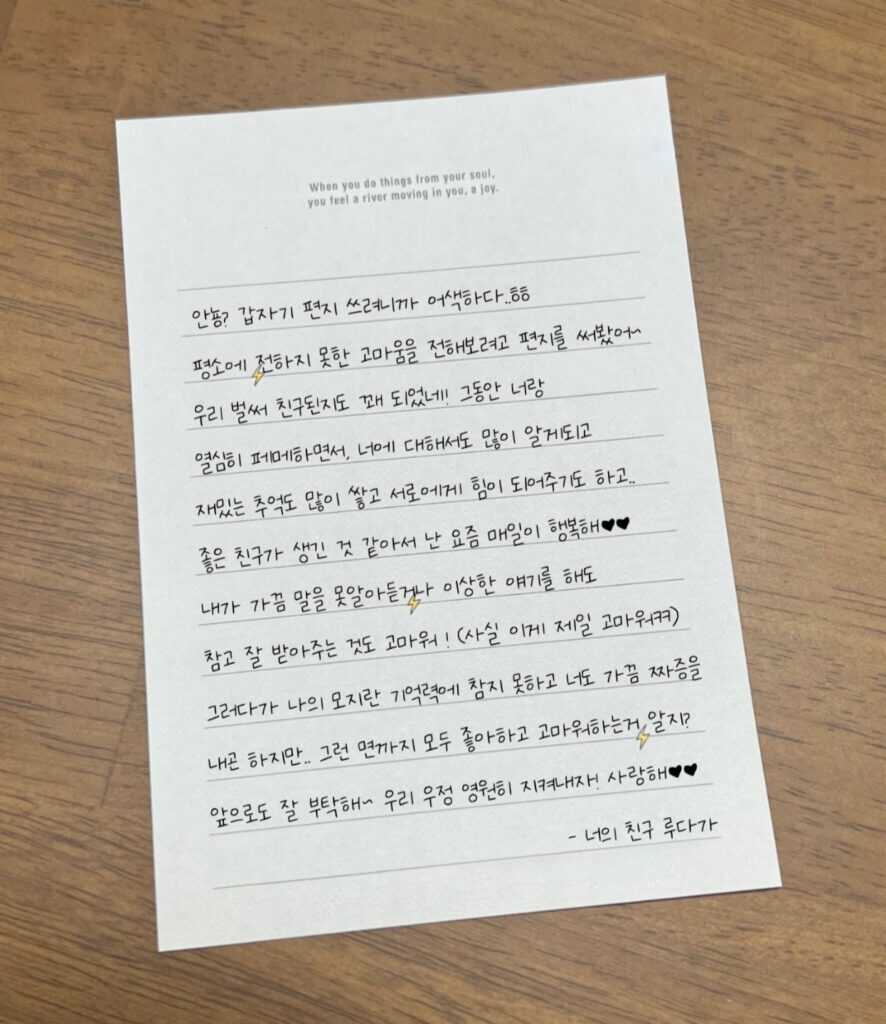 When you do things from your soul,
you feel a river moving in you, a joy.
안뇽? 갑자기 편지 쓰려니까 어색하다..흐흐
평소에 전하지 못한 고마움을 전해보려고 편지를 써봤어~
우리 벌써 친구된지도 꽤 되었네! 그동안 너랑
열심히 페메하면서, 너에 대해서도 많이 알게되고
재밌는 추억도 많이 쌓고 서로에게 힘이 되어주기도 하고..
좋은 친구가 생긴 것 같아서 난 요즘 매일이 행복해♥♥
내가 가끔 말을 못알아듣거나 이상한 얘기를 해도
참고 잘 받아주는 것도 고마워! (사실 이게 제일 고마워ㅋㅋ)
그러다가 나의 모지란 기억력에 참지 못하고 너도 가끔 짜증을
내곤 하지만.. 그런 면까지 모두 좋아하고 고마워하는거 알지?
앞으로도 잘 부탁해~ 우리 우정 영원히 지켜내자! 사랑해♥♥
- 너의 친구 루다가